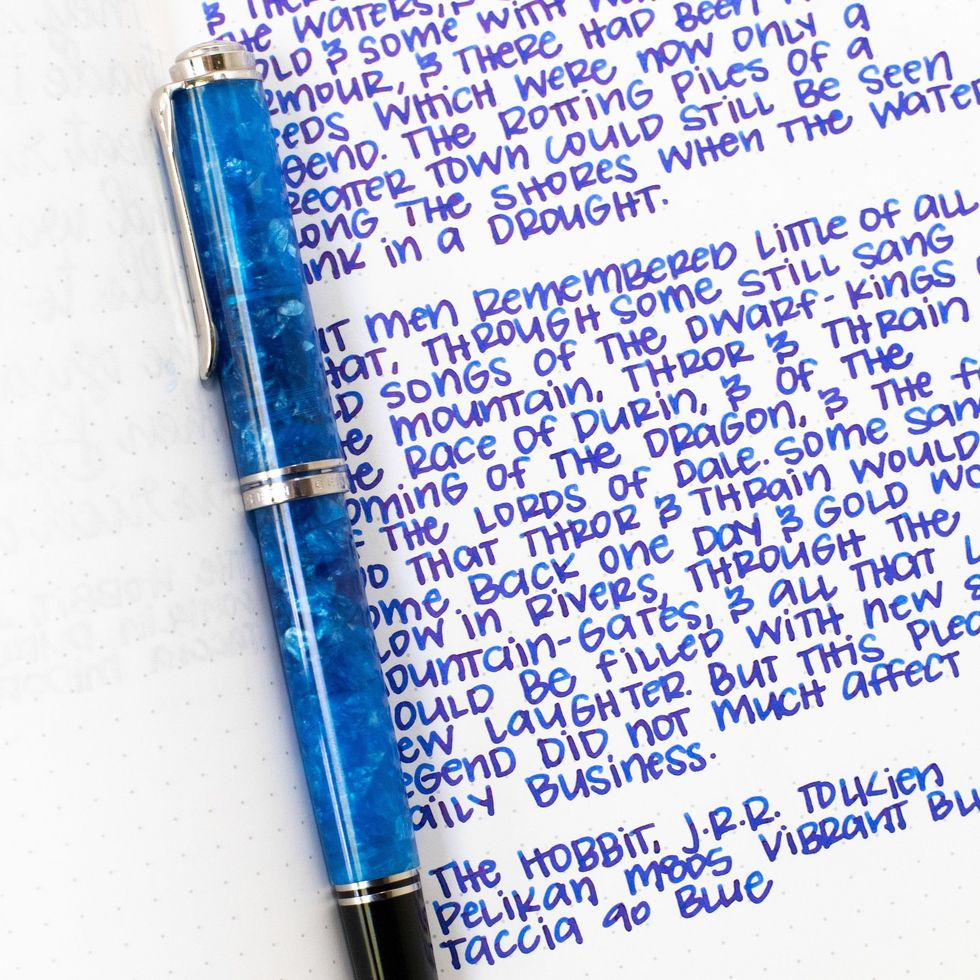 & THERE
THE WATERS, & SOME WITH
GOLD & SOME WITH
ARMOUR, & THERE HAD BEEN
DEEDS WHICH WERE NOW ONLY A
LEGEND. THE ROTTING PILES OF A
GREATER TOWN COULD STILL BE SEEN
ALONG THE SHORES WHEN THE WATER
SANK IN A DROUGHT.
BUT MEN REMEMBERED LITTLE OF ALL
THAT, THROUGH SOME STILL SANG
OLD SONGS OF THE DWARF-KINGS
THE MOUNTAIN, THROR & THRAIN
THE RACE OF DURIN, & OF THE
COMING OF THE DRAGON, & THE
OF THE LORDS OF DALE. SOME SANG
TOO THAT THROR & THRAIN WOULD
COME BACK ONE DAY & GOLD WO
FLOW IN RIVERS, THROUGH THE
MOUNTAIN-GATES, & ALL THAT
WOULD BE FILLED WITH NEW S
NEW LAUGHTER. BUT THIS PLEA
LEGEND DID NOT MUCH AFFECT
DAILY BUSINESS.
THE HOBBIT, J.R.R. TOLKIEN
PELIKAN M805 VIBRANT BLU
TACCIA AO BLUE